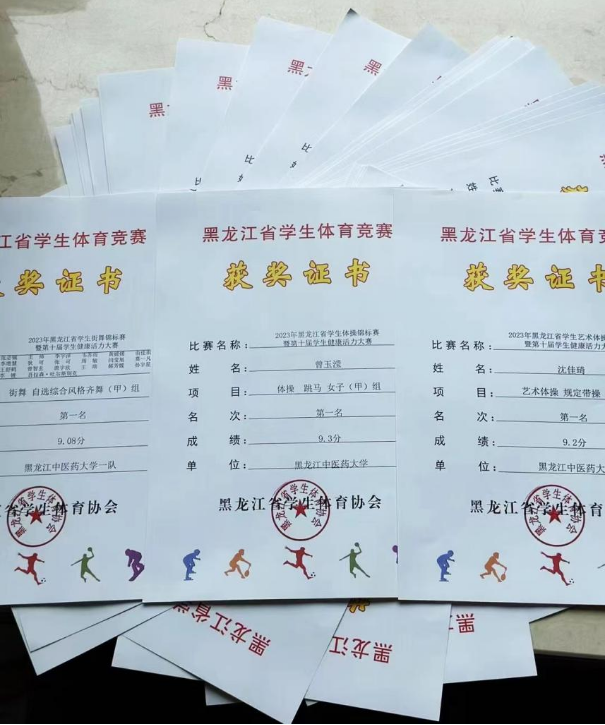 黑
黑
黑
黑
黑
比
比
江省学生体育竞赛
奖证书
2023年黑龙江省学生街舞锦标赛
暨第十届学生健康活力大赛
街舞 自选综合风格齐舞（甲）组
第一名
9.08分
黑龙江中医药大学一队
江省学生体育协会
黑龙江省学生体育竞赛
获奖证书
2023年黑龙江省学生体操锦标赛
比赛名称：暨第十届学生健康活力大赛
姓名：曾玉滢
项目：体操 跳马 女子（甲）组
名次：第一名
成绩：9.3分
单位：黑龙江中医药大学
黑龙江省学生体育协会
黑龙江省学生体育竞
获奖证书
2023年黑龙江省学生艺术体操
比赛名称：暨第十届学生健康活力大
姓名：沈佳琦
项目：艺术体操 规定带操
名次：第一名
成绩：9.2分
单位：黑龙江中医药大
黑龙江省学生体育
黑龙江省学
黑龙江
黑